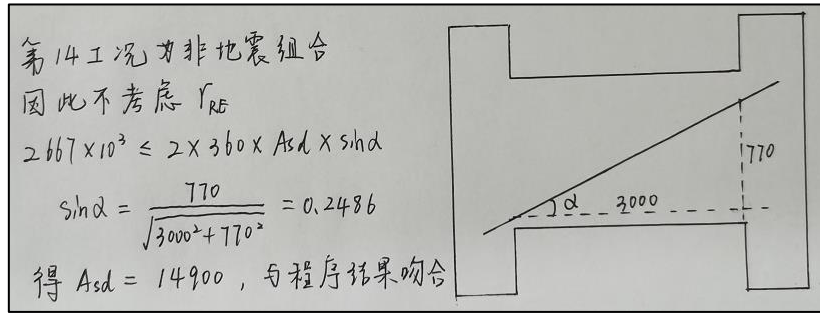 第14工况为非地震组合
因此不考虑 γRE
2667×10³ ≤ 2×360×Asd×sinα
sinα = 770/√(3000²+770²) = 0.2486
得 Asd = 14900，与程序结果吻合
770
α
3000